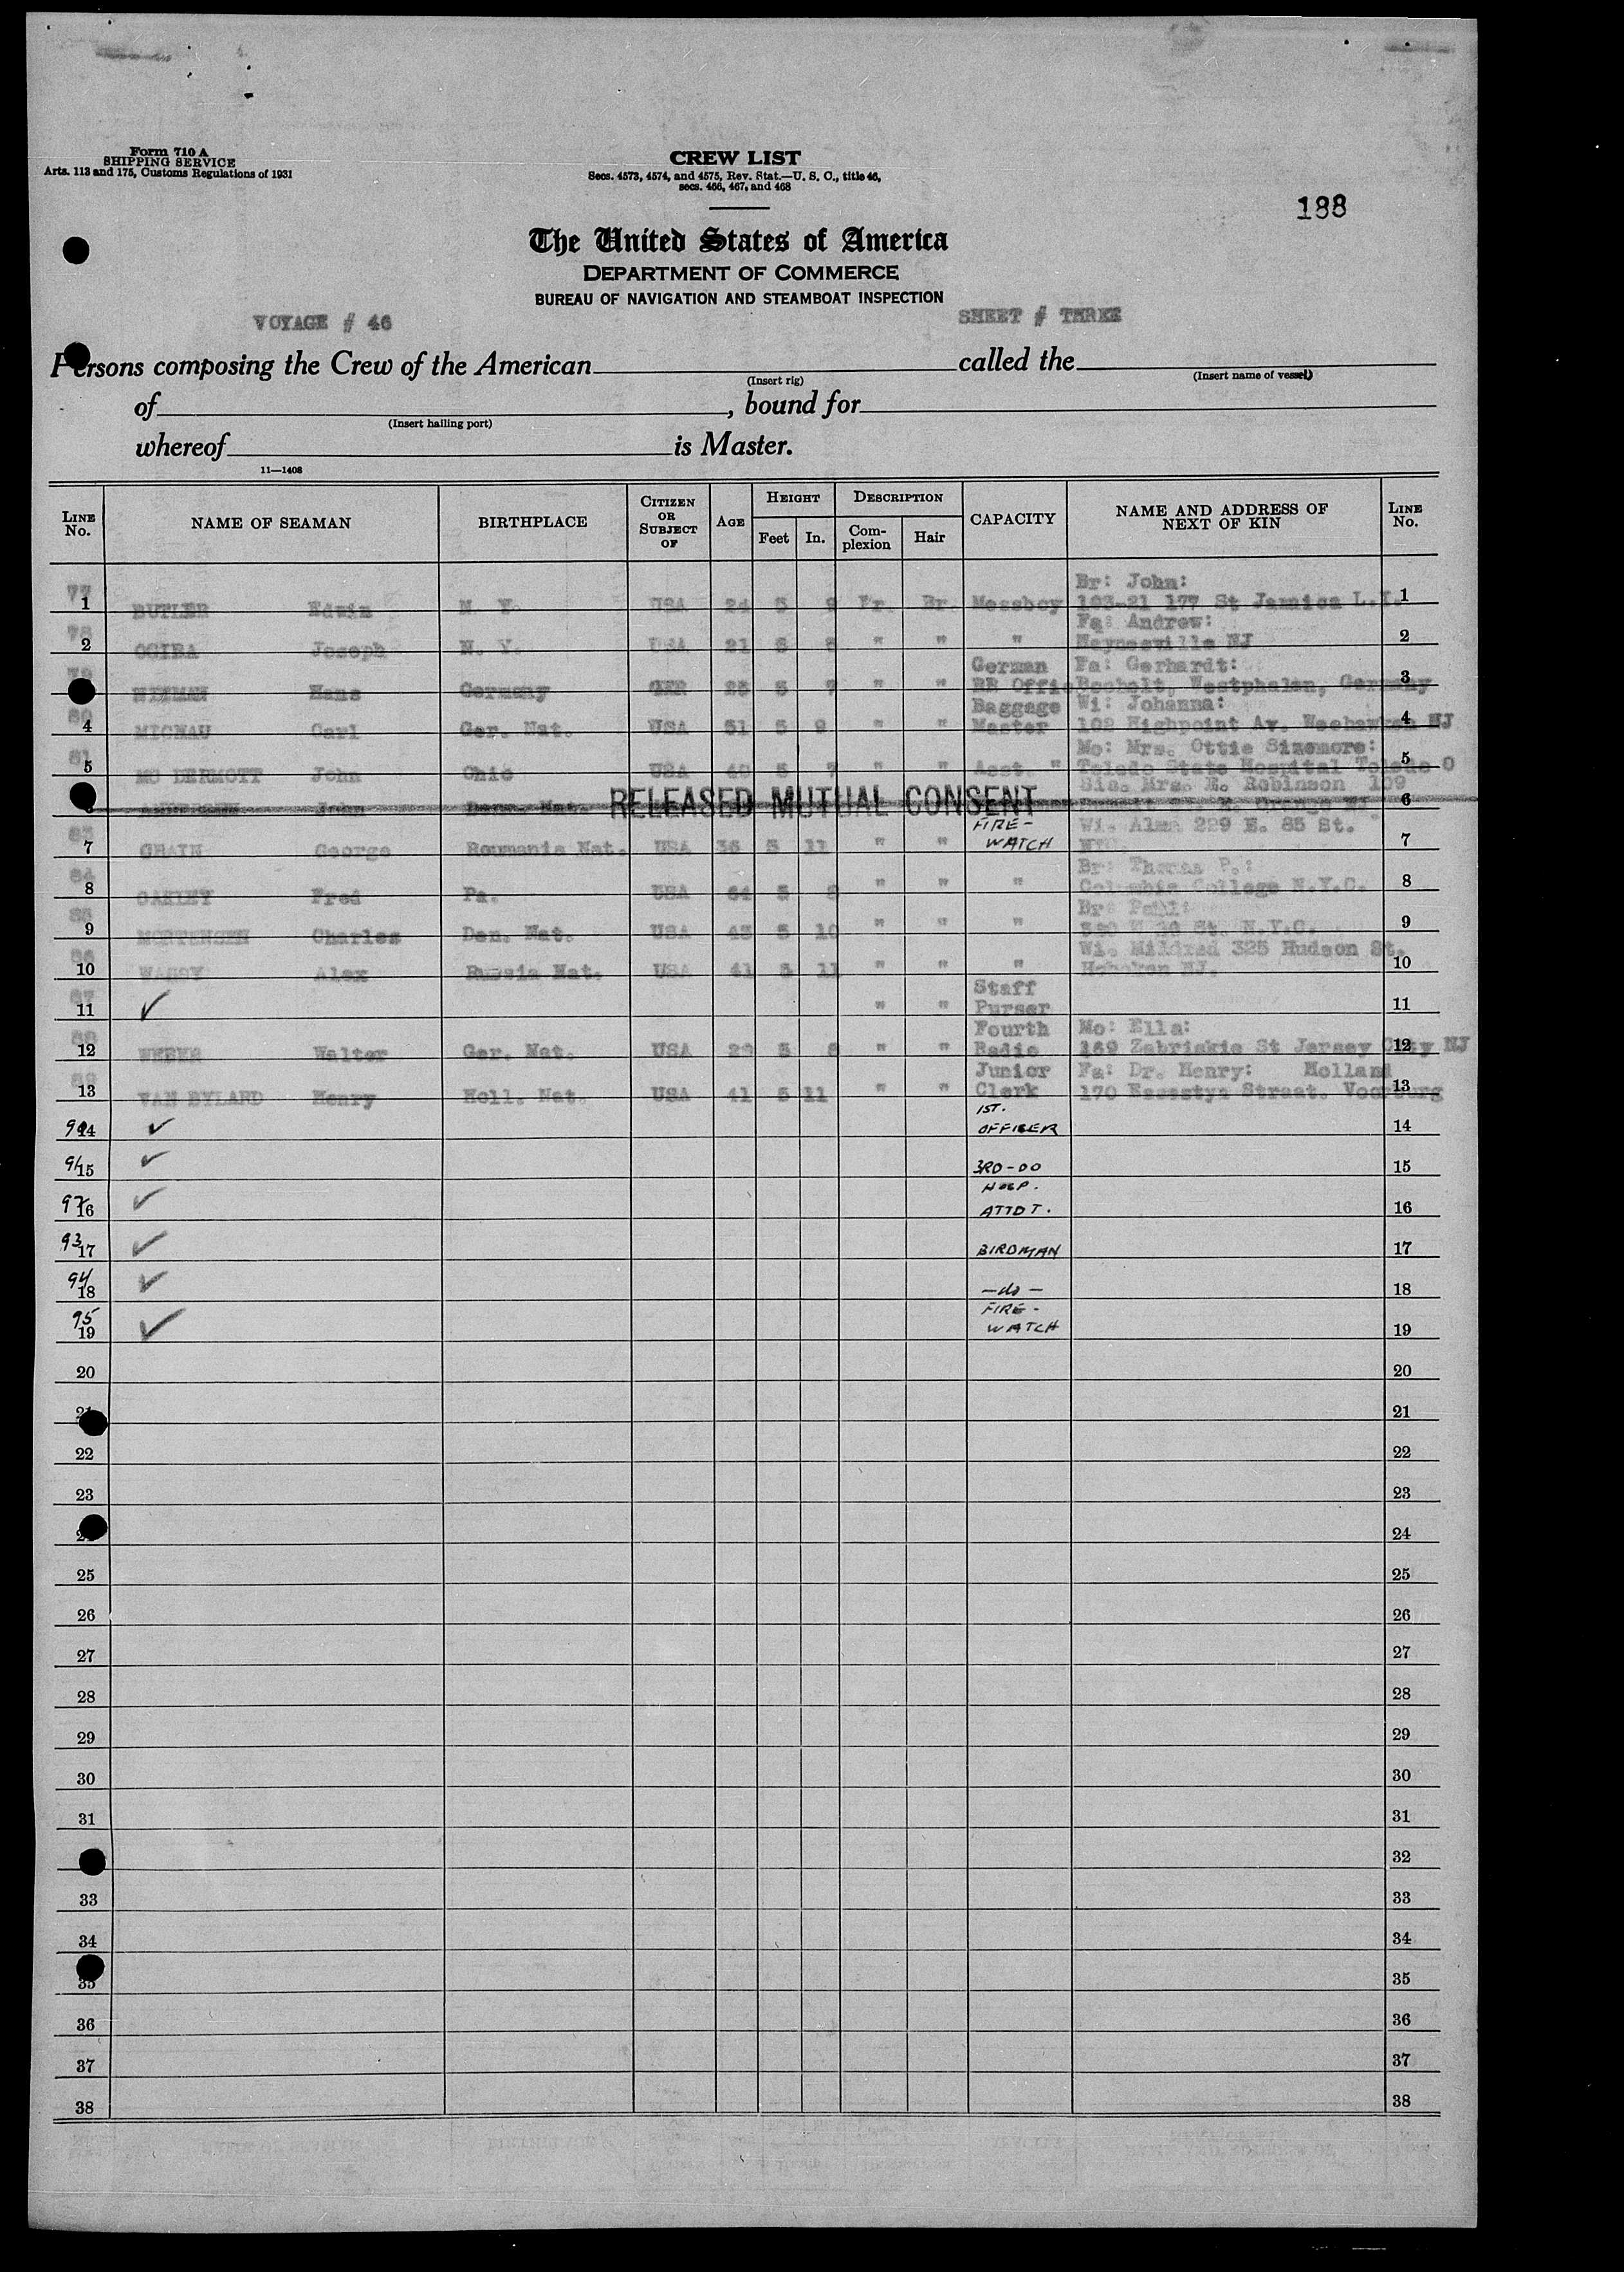 Form 710 A
SHIPPING SERVICE
Arts. 113 and 175, Customs Regulations of 1931
CREW LIST
Secs. 4573, 4574, and 4575, Rev. Stat.—U. S. C., title 46,
secs. 466, 467, and 468
188
The United States of America
DEPARTMENT OF COMMERCE
BUREAU OF NAVIGATION AND STEAMBOAT INSPECTION
VOYAGE # 46
SHEET # THREE
Persons composing the Crew of the American called the
(Insert rig) (Insert name of vessel)
of , bound for
(Insert hailing port)
whereof is Master.
11—1408
LINE No. NAME OF SEAMAN BIRTHPLACE CITIZEN OR SUBJECT OF AGE HEIGHT Feet In. DESCRIPTION Complexion Hair CAPACITY NAME AND ADDRESS OF NEXT OF KIN LINE No.
Br: John:
77 1 BUTLER Edwin N. Y. USA 24 5 9 Fr. Br. Messboy 103-21 177 St Jamica L.I. 1
Fa: Andrew:
78 2 OGIBA Joseph N. Y. USA 21 " " " NJ 2
German Fa: Gerhardt:
79 Hans Germany GER 5 7 " " RR Offic Bocholt, Westphalen, Germany 3
Baggage Wi: Johanna:
80 4 MICHAU Carl Ger. Nat. USA 51 5 9 " " Master 102 Highpoint Av. Weehawken NJ 4
Mo: Mrs. Ottie Sizemore:
81 5 MC DERMOTT John Ohio USA 40 5 7 " " Asst. " Toledo State Hospital Toledo O 5
Sis. Mrs. E. Robinson 109
John RELEASED MUTUAL CONSENT Orange NJ 6
FIRE- Wi. Alma 229 E. 85 St.
83 7 George Roumania Nat. USA 36 5 11 " " WATCH NYC. 7
Br: Thomas P.:
84 8 OAKLEY Fred Pa. USA 64 5 " " " Columbia College N.Y.C. 8
Br: Paul:
85 9 MORTENSEN Charles Den. Nat. USA 45 5 10 " " " St. N.Y.C. 9
Wi. Mildred 325 Hudson St.
86 10 Alex Russia Nat. USA 41 5 11 " " " Hoboken NJ. 10
Staff
87 11 ✓ " " Purser 11
Fourth Mo: Ella:
88 12 WEBER Walter Ger. Nat. USA 29 5 8 " " Radio 169 Zabriskie St Jersey City NJ 12
Junior Fa: Dr. Henry: Holland
89 13 VAN BYLARD Henry Holl. Nat. USA 41 5 11 " " Clerk 170 Straat. Voorburg 13
1ST.
90 14 ✓ OFFICER 14
91 15 ✓ 3RD-DO 15
HOSP.
92 16 ✓ ATTDT. 16
93 17 ✓ BIRDMAN 17
94 18 ✓ —do— 18
FIRE-
95 19 ✓ WATCH 19
20 20
21 21
22 22
23 23
24
25 25
26 26
27 27
28 28
29 29
30 30
31 31
32
33 33
34 34
35 35
36 36
37 37
38 38